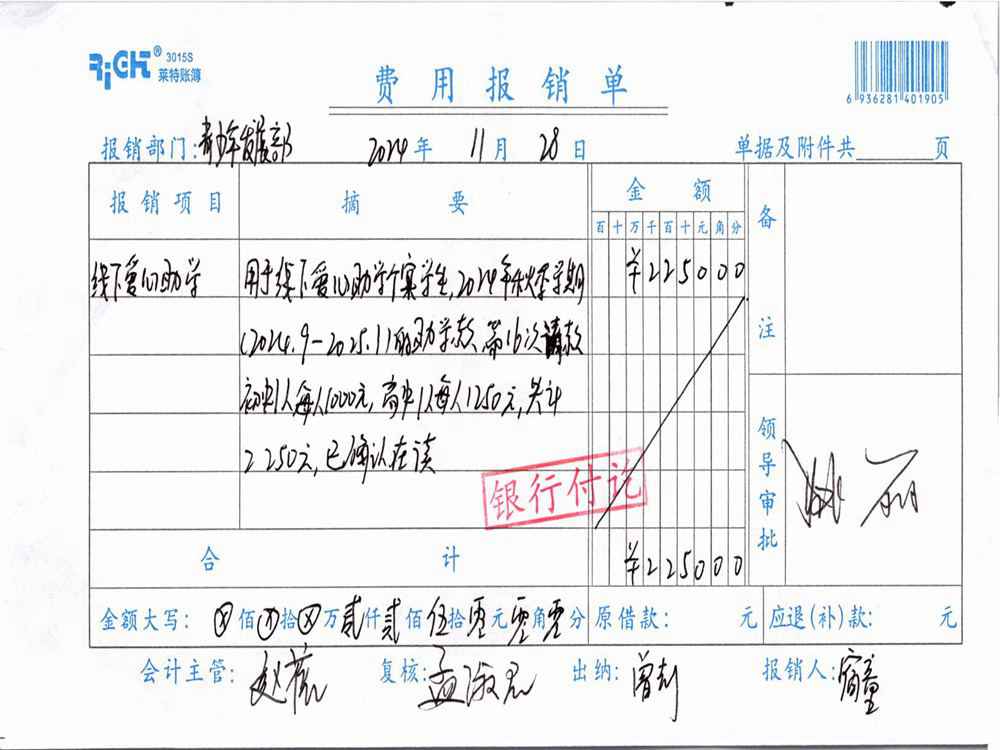 RiGHT® 3015S
莱特账簿
费用报销单
6 936281 401905
报销部门:青少年发展部 2024年 11月 28日 单据及附件共 页
报销项目 摘要 金额 备注
百十万千百十元角分
线下爱心助学 用于线下爱心助学个案学生,2024年秋季学期 ¥225000
(2024.9-2025.1)的助学款,第16次请款
初中1人每人1000元,高中1人每人1250元,共计
2250元,已确认在读
银行付讫
领导审批
合计 ¥225000
金额大写: ⊗佰⊗拾⊗万贰仟贰佰伍拾零元零角零分 原借款: 元 应退(补)款: 元
会计主管: 复核:孟淑君 出纳: 报销人: